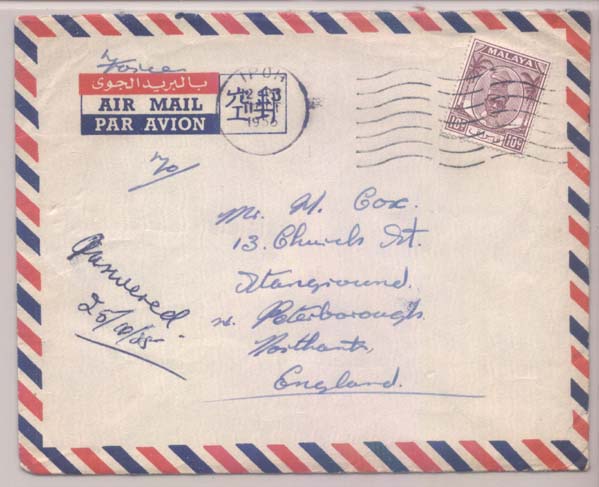 بالبريد الجوى
AIR MAIL
PAR AVION
IPOH
空郵
MALAYA
10c 10c
To/
Mr. H. Cox.
13. Church St.
Stanground.
nr. Peterborough
Northants,
England.
Answered.
25/10/55